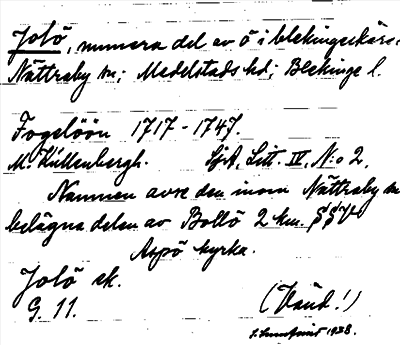 Jolö, numera del av ö i blekingeskärg.
Nättraby sn; Medelstads hd; Blekinge l.
Fogelöön 1717-1747.
M. Küllenbergh. SjA, Litt. IV, N:o 2.
Namnen avse den inom Nättraby sn
belägna delen av Bollö 2 km. SSV
Aspö kyrka.
Jolö ek.
G. 11.
(Vänd!)
1938.